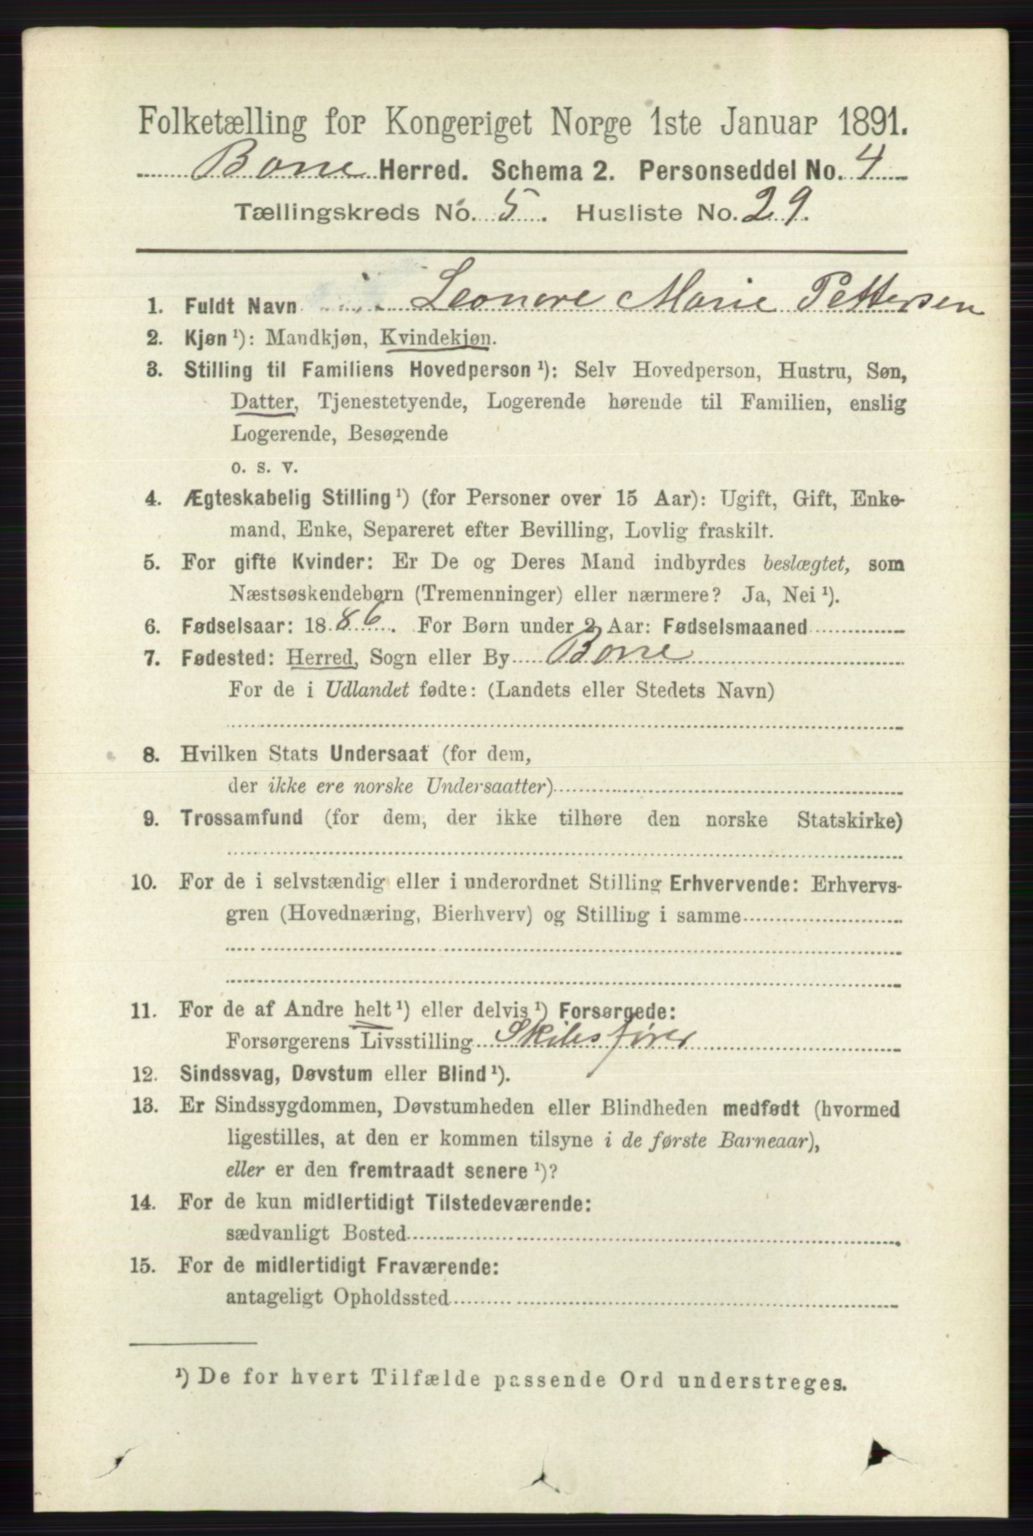 Folketælling for Kongeriget Norge 1ste Januar 1891.
Borre Herred. Schema 2. Personseddel No. 4
Tællingskreds No. 5. Husliste No. 29.
1. Fuldt Navn Leonore Marie Pettersen
2. Kjøn ¹): Mandkjøn, Kvindekjøn.
3. Stilling til Familiens Hovedperson ¹): Selv Hovedperson, Hustru, Søn,
Datter, Tjenestetyende, Logerende hørende til Familien, enslig
Logerende, Besøgende
o. s. v.
4. Ægteskabelig Stilling ¹) (for Personer over 15 Aar): Ugift, Gift, Enke-
mand, Enke, Separeret efter Bevilling, Lovlig fraskilt.
5. For gifte Kvinder: Er De og Deres Mand indbyrdes beslægtet, som
Næstsøskendebørn (Tremenninger) eller nærmere? Ja, Nei ¹).
6. Fødselsaar: 1886. For Børn under 2 Aar: Fødselsmaaned
7. Fødested: Herred, Sogn eller By Borre
For de i Udlandet fødte: (Landets eller Stedets Navn)
8. Hvilken Stats Undersaat (for dem,
der ikke ere norske Undersaatter)
9. Trossamfund (for dem, der ikke tilhøre den norske Statskirke)
10. For de i selvstændig eller i underordnet Stilling Erhvervende: Erhvervs-
gren (Hovednæring, Bierhverv) og Stilling i samme
11. For de af Andre helt ¹) eller delvis ¹) Forsørgede:
Forsørgerens Livsstilling Skibsfører
12. Sindssvag, Døvstum eller Blind ¹).
13. Er Sindssygdommen, Døvstumheden eller Blindheden medfødt (hvormed
ligestilles, at den er kommen tilsyne i de første Barneaar),
eller er den fremtraadt senere ¹)?
14. For de kun midlertidigt Tilstedeværende:
sædvanligt Bosted
15. For de midlertidigt Fraværende:
antageligt Opholdssted
¹) De for hvert Tilfælde passende Ord understreges.